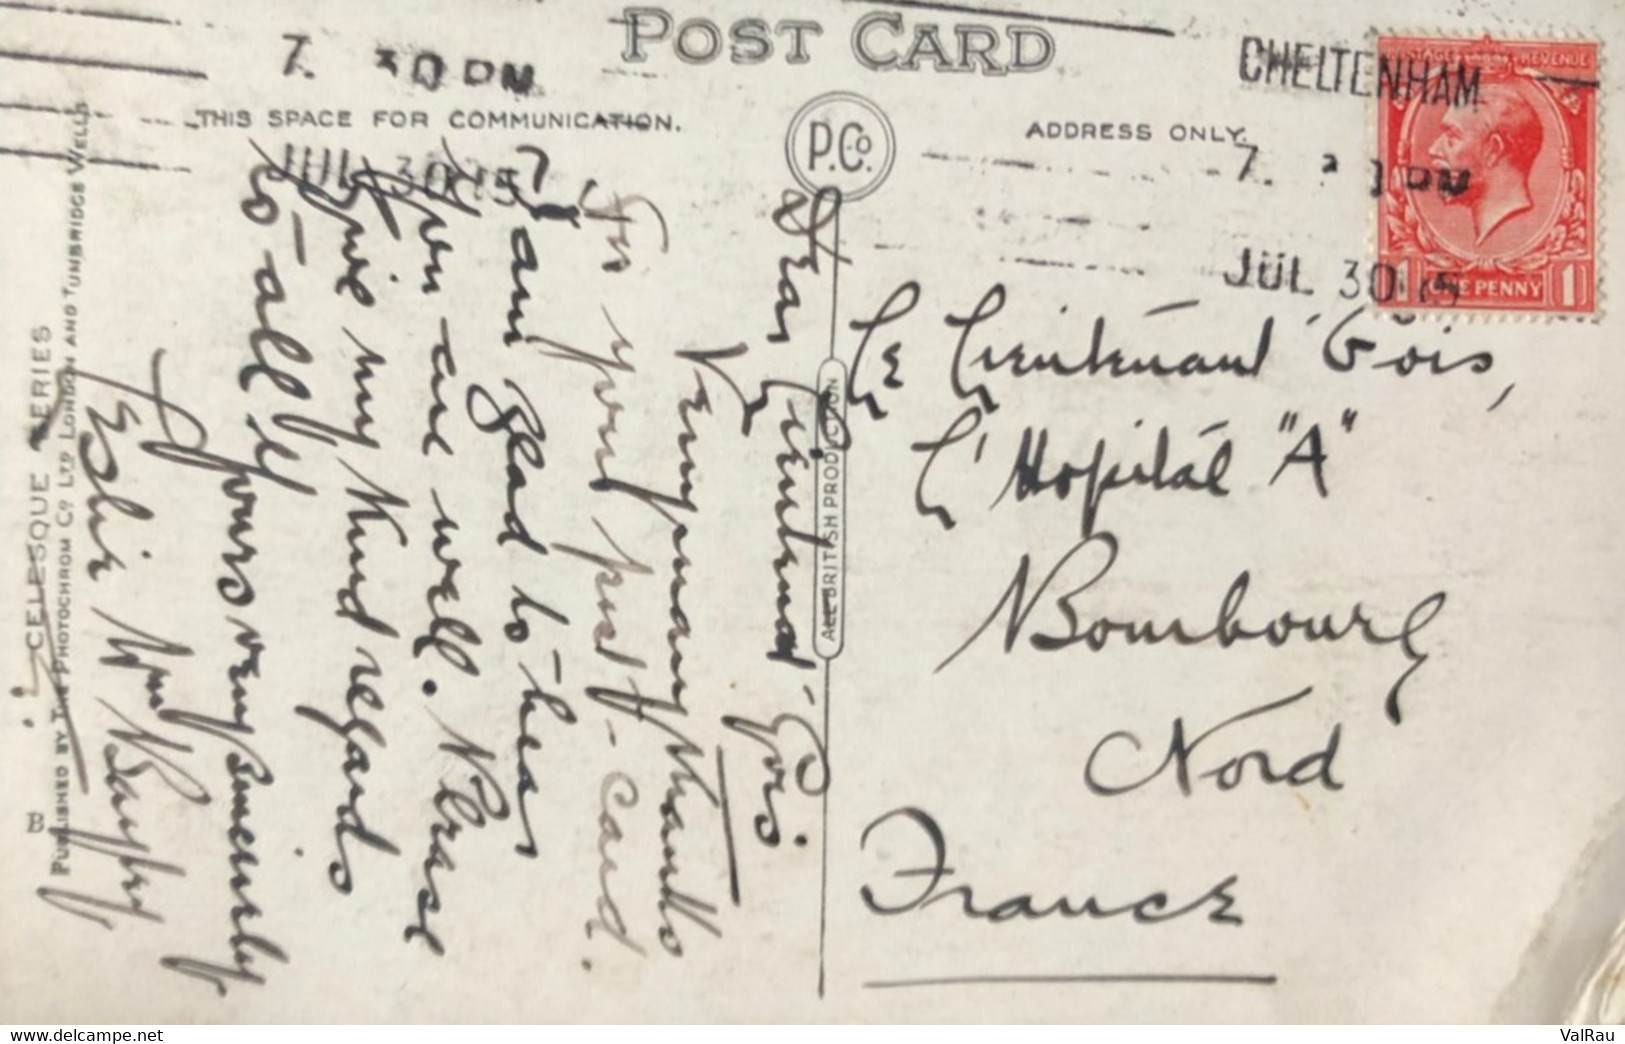 POST CARD
THIS SPACE FOR COMMUNICATION.
ADDRESS ONLY.
P.Co.
CHELTENHAM
7. 30 PM
JUL 30 15
7. 30 PM
JUL 30 15
POSTAGE REVENUE
1 ONE PENNY 1
Dear Lieutenant Gois
Very many thanks
for your post-card.
I am glad to hear
you are well. Please
give my kind regards
to all.
Yours very sincerely
Le Lieutenant Gois,
L'Hopital "A"
Bourbourg
Nord
France
ALL BRITISH PRODUCTION
CELESQUE SERIES
PUBLISHED BY THE PHOTOCHROM CO. LTD. LONDON AND TUNBRIDGE WELLS
B
ValRau